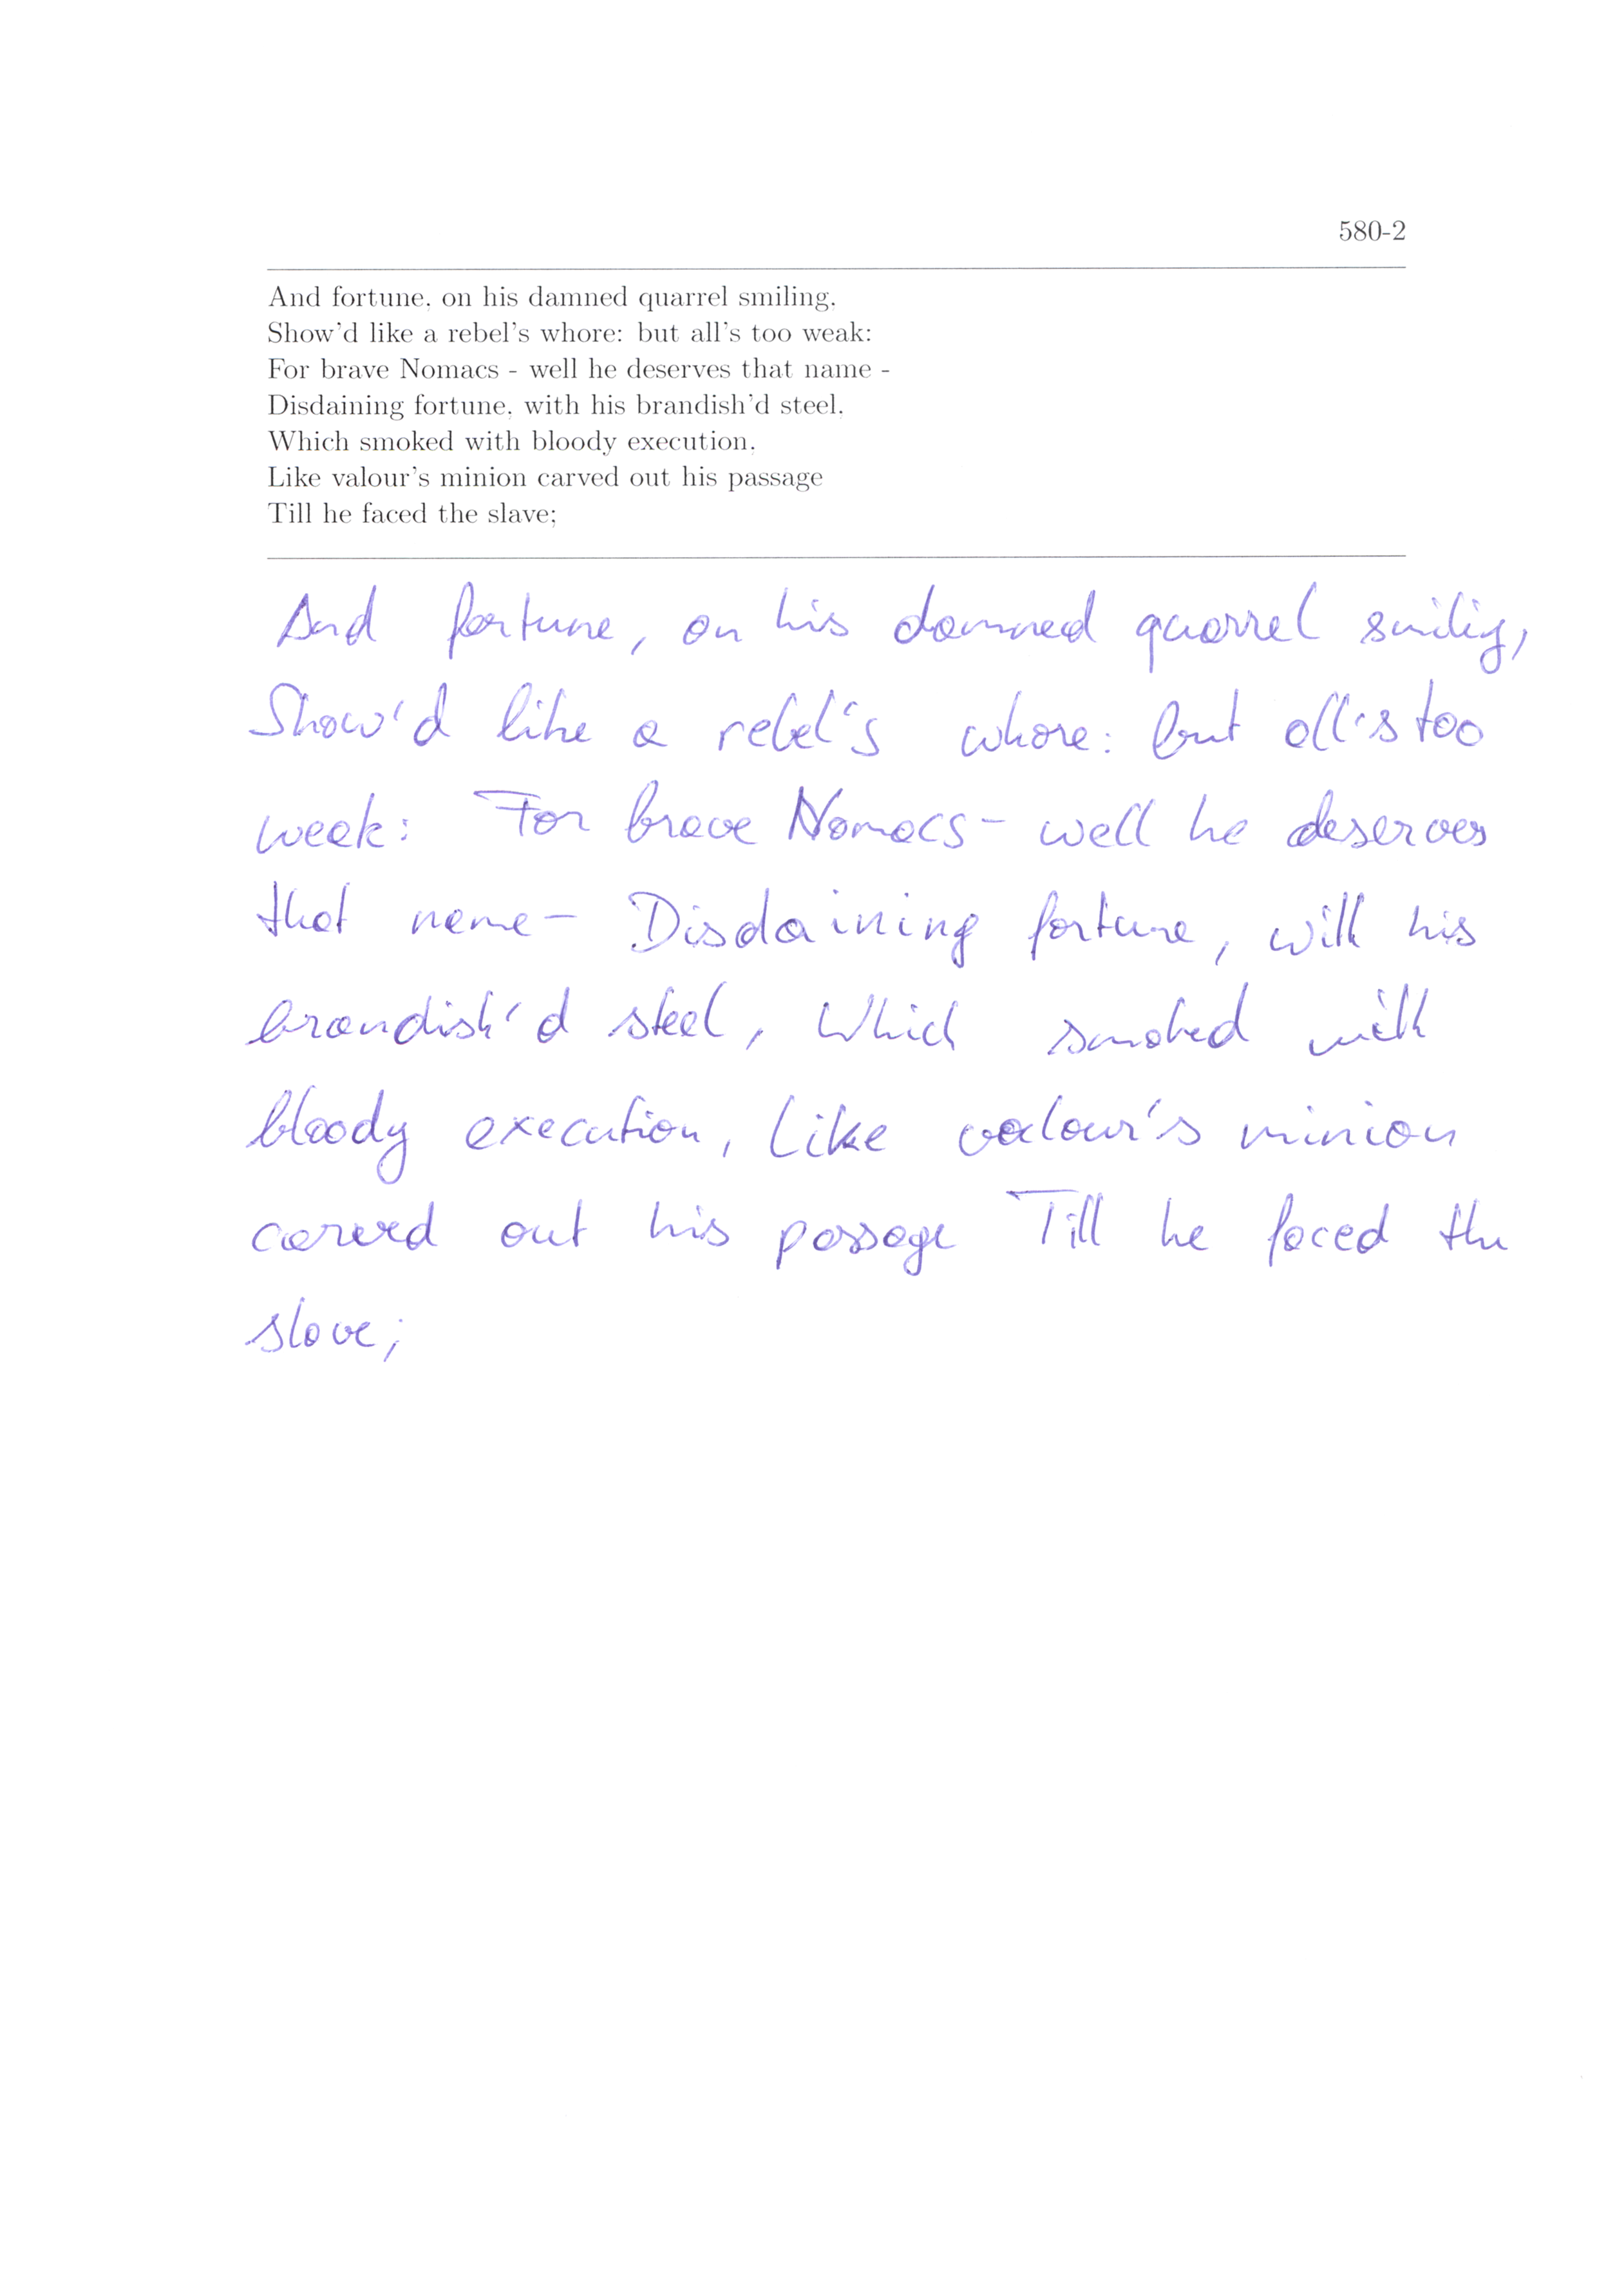 580-2
And fortune, on his damned quarrel smiling,
Show'd like a rebel's whore: but all's too weak:
For brave Nomacs - well he deserves that name -
Disdaining fortune, with his brandish'd steel,
Which smoked with bloody execution,
Like valour's minion carved out his passage
Till he faced the slave;
And fortune, on his damned quarrel smilig,
Show'd like a rebel's whore: but all's too
weak: For brave Nomacs - well he deserves
that name - Disdaining fortune, with his
brandish'd steel, Which smoked with
bloody execution, Like valour's minion
carved out his passage Till he faced the
slave;